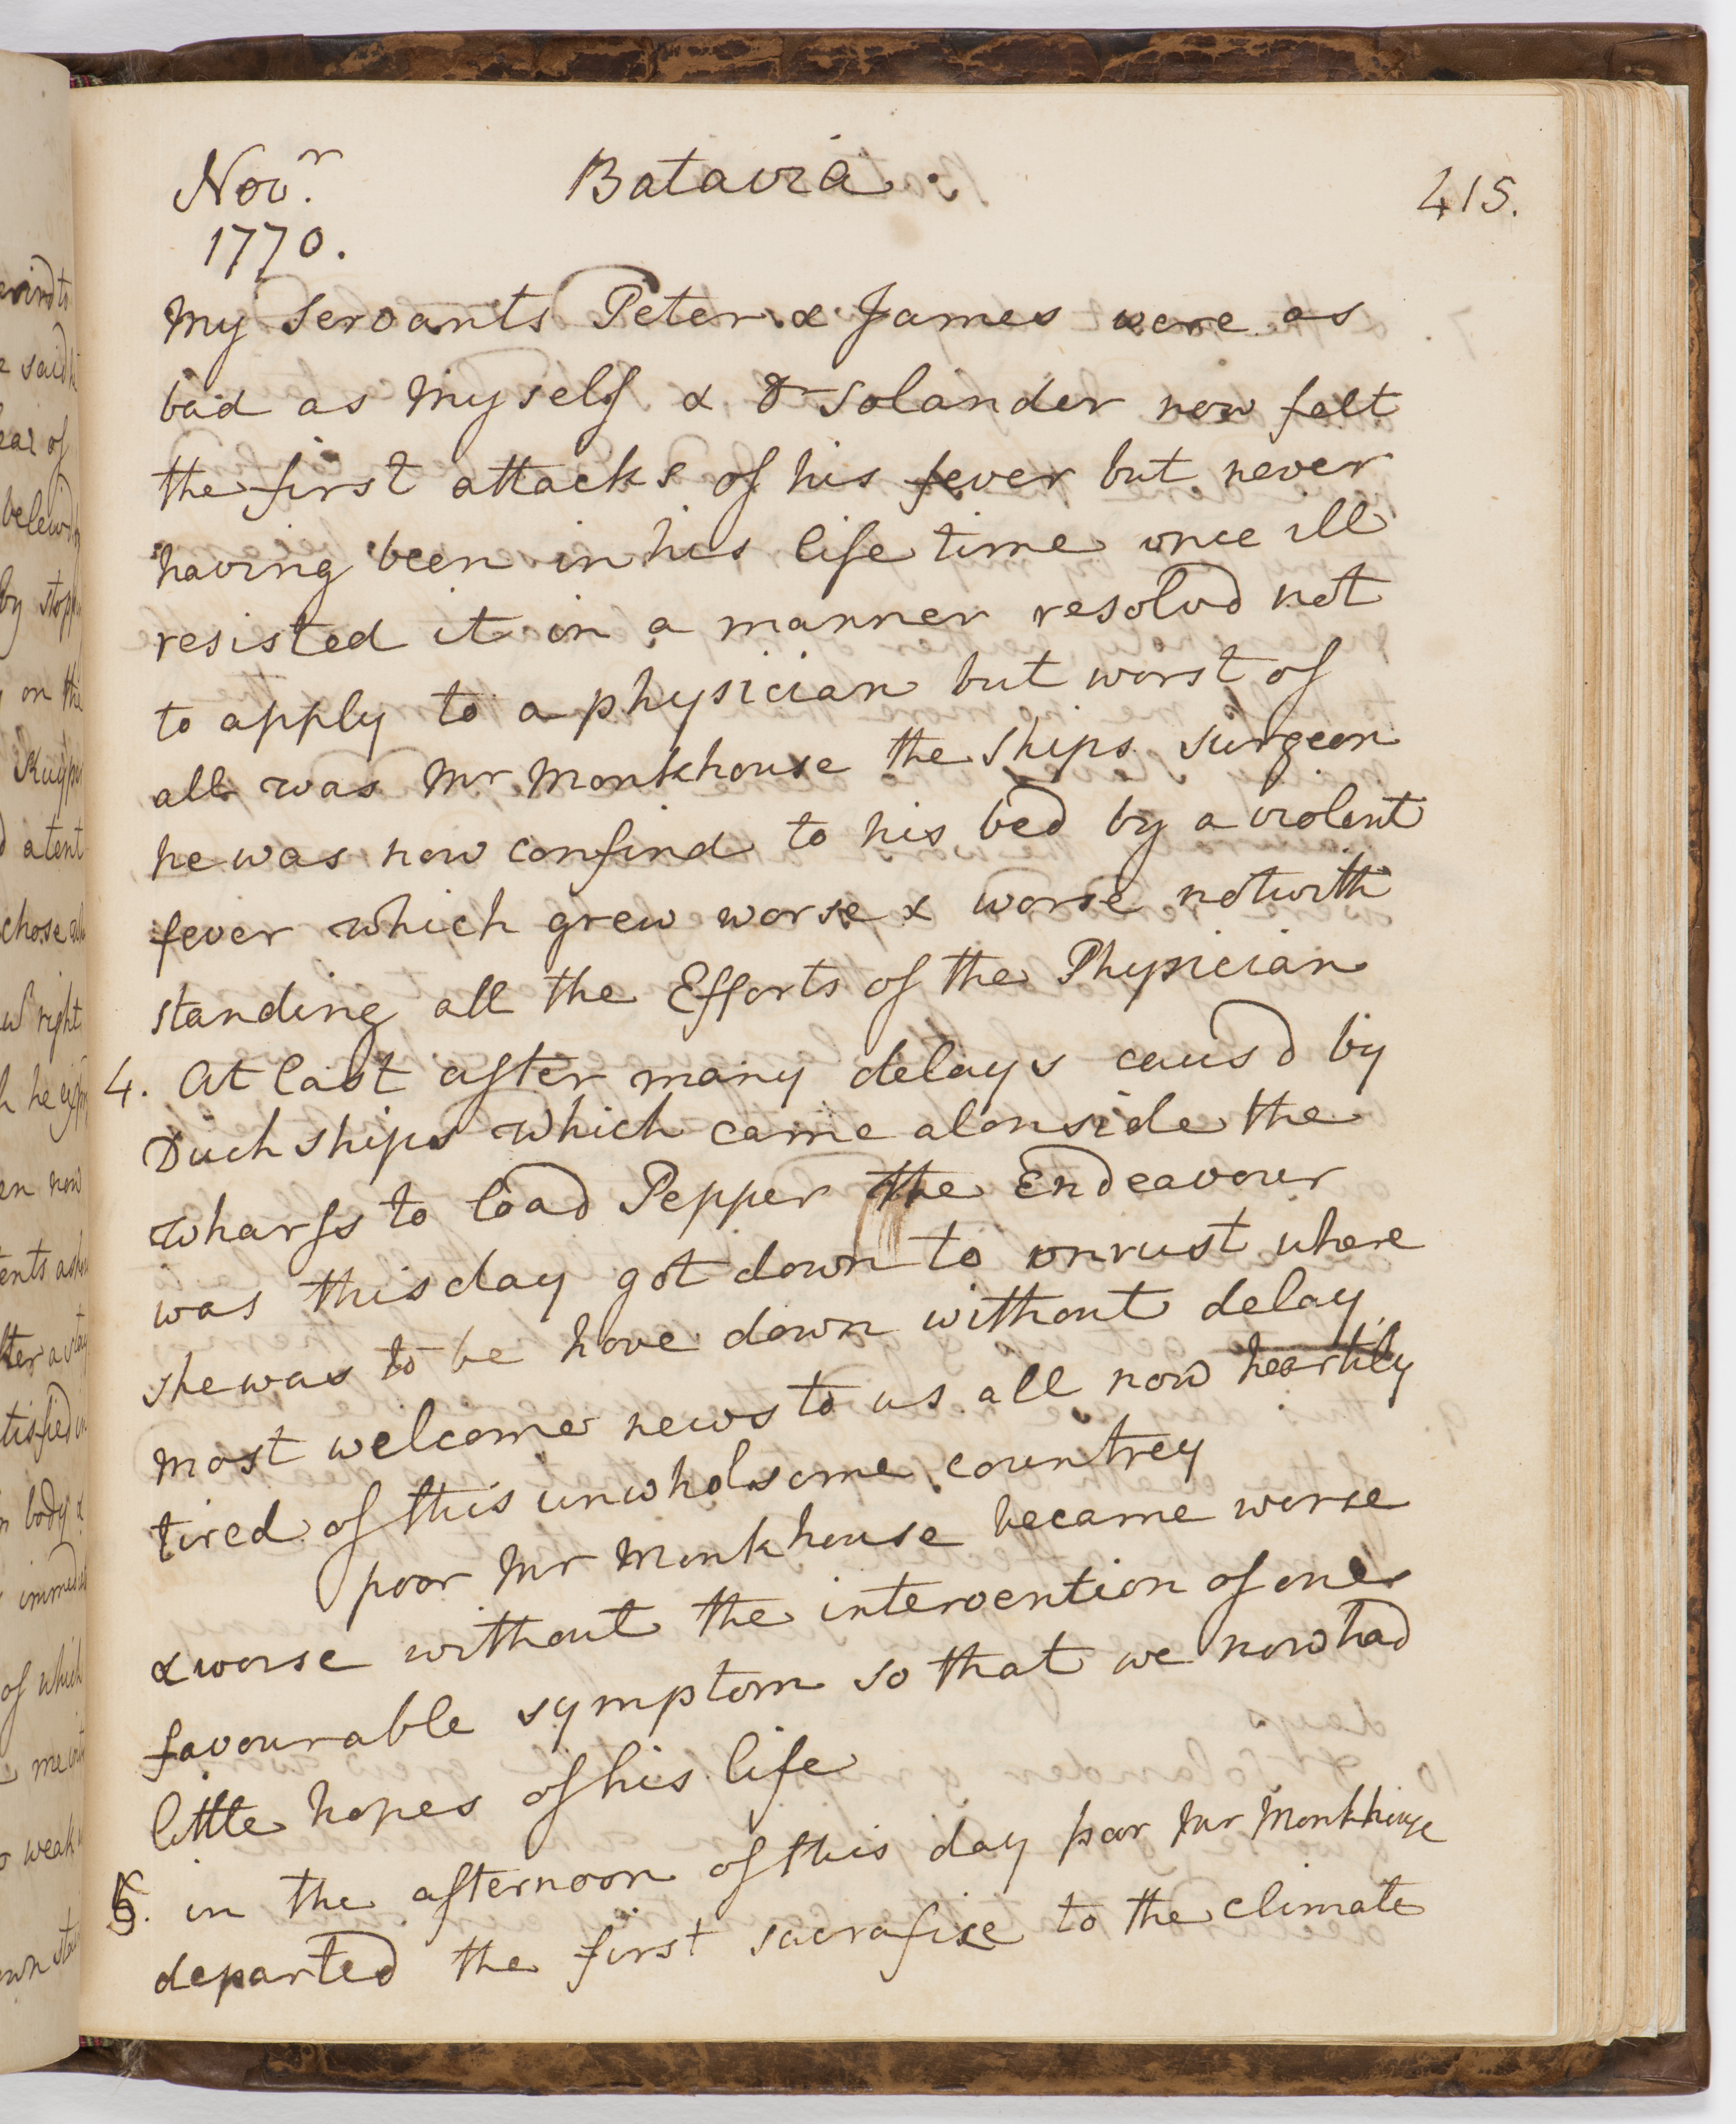 Novr.
1770.
Batavia.
415.
My Servants Peter & James were as
bad as myself & Dr Solander now felt
the first attacks of his fever but never
having been in his life time once ill
resisted it in a manner resolvd not
to apply to a physician but worst of
all was Mr Monkhouse the ships surgeon
he was now confind to his bed by a violent
fever which grew worse & worse notwith
standing all the Efforts of the Physician
4. At last after many delays causd by
Duch ships which came alonside the
wharfs to load Pepper the Endeavour
was this day got down to onrust where
she was to be hove down without delay
most welcome news to us all now heartily
tired of this unwholsome countrey
poor Mr Monkhouse became worse
& worse without the intervention of one
favourable symptom so that we now had
little hopes of his life
5. in the afternoon of this day poor Mr Monkhouse
departed the first sacrafise to the climate